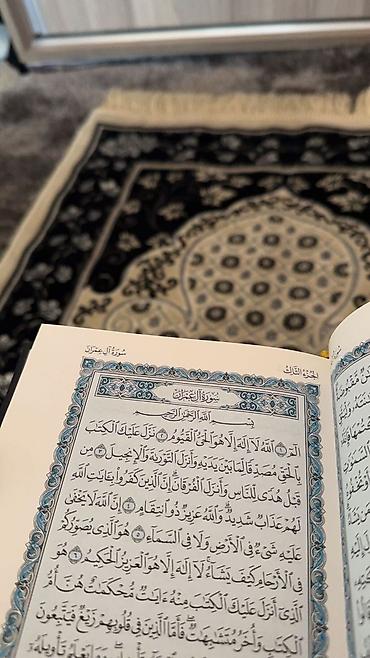 سُورَةُ آلِ عِمْرَانَ
الجُزْءُ الثَّالِثُ
سُورَةُ آلِ عِمْرَانَ
بِسْمِ اللَّهِ الرَّحْمَٰنِ الرَّحِيمِ
الٓمٓ ١ ٱللَّهُ لَآ إِلَٰهَ إِلَّا هُوَ ٱلْحَىُّ ٱلْقَيُّومُ ٢ نَزَّلَ عَلَيْكَ ٱلْكِتَٰبَ
بِٱلْحَقِّ مُصَدِّقًا لِّمَا بَيْنَ يَدَيْهِ وَأَنزَلَ ٱلتَّوْرَىٰةَ وَٱلْإِنجِيلَ ٣ مِن
قَبْلُ هُدًى لِّلنَّاسِ وَأَنزَلَ ٱلْفُرْقَانَ إِنَّ ٱلَّذِينَ كَفَرُوا۟ بِـَٔايَٰتِ ٱللَّهِ
لَهُمْ عَذَابٌ شَدِيدٌ وَٱللَّهُ عَزِيزٌ ذُو ٱنتِقَامٍ ٤ إِنَّ ٱللَّهَ لَا يَخْفَىٰ
عَلَيْهِ شَىْءٌ فِى ٱلْأَرْضِ وَلَا فِى ٱلسَّمَآءِ ٥ هُوَ ٱلَّذِى يُصَوِّرُكُمْ
فِى ٱلْأَرْحَامِ كَيْفَ يَشَآءُ لَآ إِلَٰهَ إِلَّا هُوَ ٱلْعَزِيزُ ٱلْحَكِيمُ ٦ هُوَ
ٱلَّذِىٓ أَنزَلَ عَلَيْكَ ٱلْكِتَٰبَ مِنْهُ ءَايَٰتٌ مُّحْكَمَٰتٌ هُنَّ أُمُّ
ٱلْكِتَٰبِ وَأُخَرُ مُتَشَٰبِهَٰتٌ فَأَمَّا ٱلَّذِينَ فِى قُلُوبِهِمْ زَيْغٌ فَيَتَّبِعُونَ